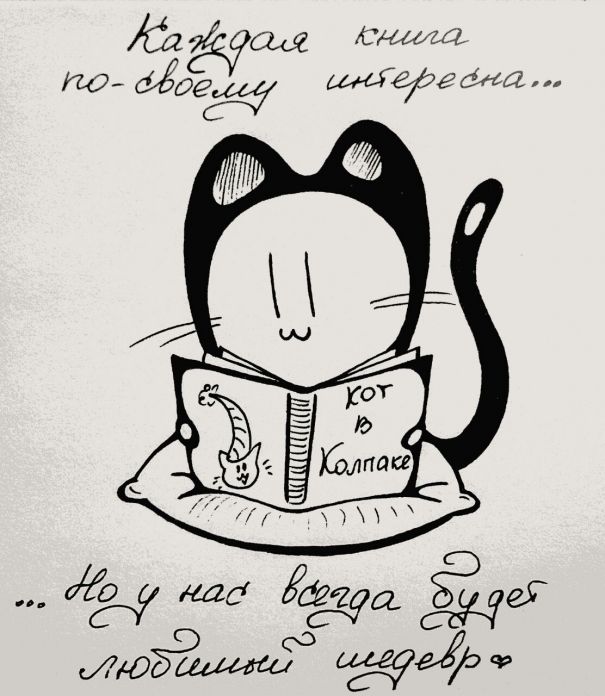 Каждая книга
по-своему интересна...
Кот
в
Колпаке
... Но у нас всегда будет
любимый шедевр